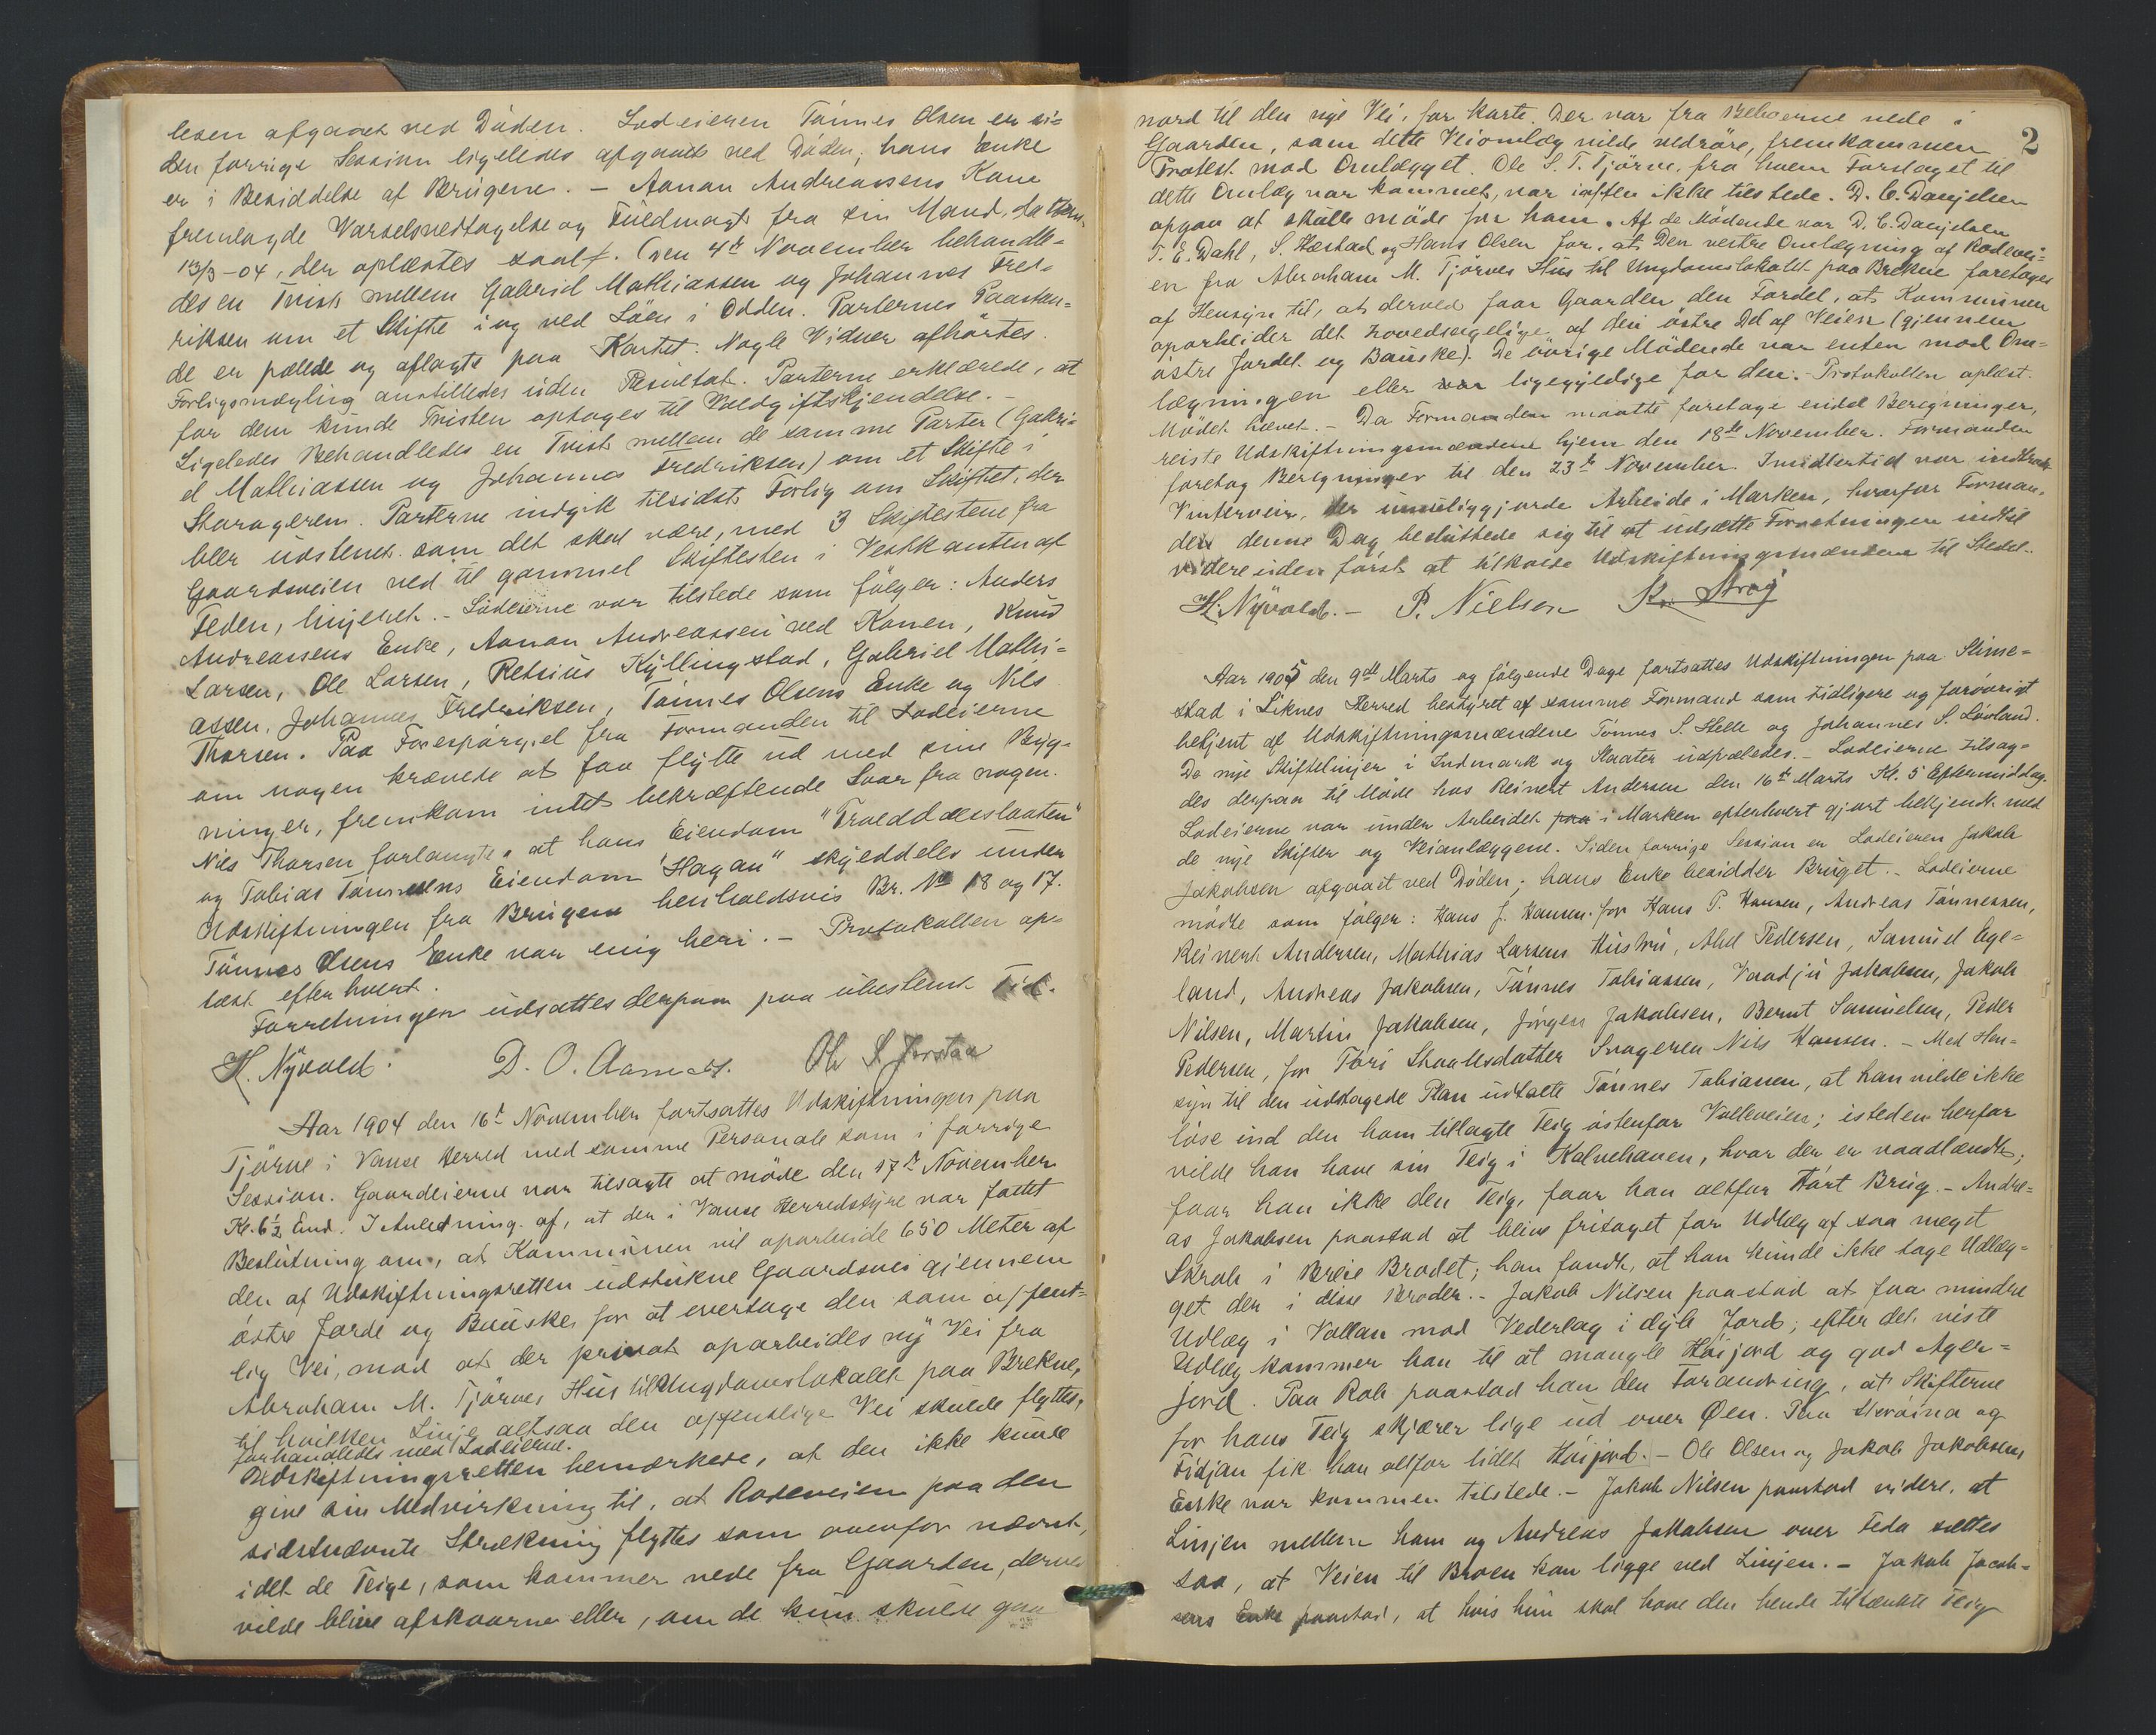 lesen afgaaet ved Döden. Lodeieren Tönnes Olsen er si-
den forrige Session ligeledes afgaaet ved Döden; hans Enke
er i Besiddelse af Brugene. - Aanan Andreassens Kone
fremlagde Varselsvedtagelse og Fuldmagt fra sin Mand, dateret
13/3-04, der oplæstes saalf. Den 4de November behandle-
des en Tvist mellem Gabriel Mathiassen og Johannes Fred-
riksen om et Skifte i og ved Löen i Odden. Parternes Paastan-
de er pælede og aflagte paa Kartet. Nogle Vidner afhörtes.
Forligsmægling anstilledes uden Resultat. Parterne erklærede, at
for dem kunde Tvisten optages til Voldgiftskjendelse. -
Ligeledes behandledes en Tvist mellem de samme Parter (Gabri-
el Mathiassen og Johannes Fredriksen) om et Skifte i
Storageren. Parterne indgik tilsidst Forlig om Skiftet, der
blev udstenet som det skal være, med 3 Skiftestene fra
Gaardsveien ned til gammel Skiftesten i Vestkanten af
Feden, linjeret. - Lodeierne var tilstede som fölger: Anders
Andreassens Enke, Aanan Andreassen ved Konen, Knud
Larsen, Ole Larsen, Retsius Kyllingstad, Gabriel Mathi-
assen, Johannes Fredriksen, Tönnes Olsens Enke og Nils
Thorsen. Paa Forespörgsel fra Formanden til Lodeierne
om nogen krævede at faa flytte ud med sine Byg-
ninger, fremkom intet bekræftende Svar fra nogen.
Nils Thorsen forlangte, at hans Eiendom "Troeddæslaatten"
og Tobias Tönnesens Eiendom "Hagan" skyeddeles under
Udskiftningen fra Brugene henholdsvis Br. No 18 og 17.
Tönnes Olsens Enke var enig heri. - Protokollen op-
læst efterhvert.
Forretningen udsattes derpaa paa ubestemt Tid.
H. Nyvold. D. O. Aamodt. Ole S. Jerstad
Aar 1904 den 16de November fortsattes Udskiftningen paa
Tjörve i Vanse Herred med samme Personale som i forrige
Session. Gaardeierne var tilsagte at möde den 17de November
Kl. 6½ Emd. I Anledning af, at der i Vanse Herredstyre var fattet
Beslutning om, at Kommunen vil oparbeide 650 Meter af
den af Udskiftningsretten udstukne Gaardsvei gjennem
östre Jorde og Bauske for at overtage den som offent-
lig Vei, mod at der privat oparbeides ny Vei fra
Abraham M. Tjörves Hus til Ungdomslokalet paa Brekne,
til hvilken Linje altsaa den offentlige Vei skulde flyttes,
forhandledes med Lodeierne.
Udskiftningsretten bemærkede, at den ikke kunde
give sin Medvirkning til, at Rodeveien paa den
sidstnævnte Strækning flyttes som ovenfor nævnt,
idet de Teige, som kommer nede fra Gaarden, derved
vilde blive afskaarne eller, om de kun skulde gaa
2
nord til den nye Vei, for korte. Der var fra Beboerne nede i
Gaarden, som dette Veiomlæg vilde vedröre, fremkommen
Protest mod Omlægget. Ole S. T. Tjörve, fra hvem Forslaget til
dette Omlæg var kommet, var iaften ikke tilstede. D. C. Danjelsen
opgav at skulle möde for ham. Af de Mödende var D. C. Danjelsen
T. E. Dahl, S. Hestad og Hans Olsen for, at Den vestre Omlægning af Rodevei-
en fra Abraham M. Tjörves Hus til Ungdomslokalet paa Brekne foretages
af Hensyn til, at derved faar Gaarden den Fordel, at Kommunen
oparbeider det hovedsagelige af den östre Del af Veien (gjennem
östre Jordet og Bauske). De övrige Mödende var enten mod Om-
lægningen eller var ligegyldige for den. - Protokollen oplæst.
Mödet hævet. - Da Formanden maatte foretage endel Beregninger,
reiste Udskiftningsmændene hjem den 18de November. Formanden
foretog Beregninger til den 23de November. Imidlertid var indtraadt
Vinterveir, der umuliggjorde Arbeide i Marken, hvorfor Forman-
den denne Dag besluttede sig til at udsætte Forretningen indtil
videre uden först at tilkalde Udskiftningsmændene til Stedet.
H. Nyvold. - P. Nielsen
Aar 1905 den 9de Marts og fölgende Dage fortsattes Udskiftningen paa Stime-
stad i Liknes Herred bestyret af samme Formand som tidligere og forövrigt
betjent af Udskiftningsmændene Tönnes S. Helle og Johannes S. Lövland.
De nye Skiftelinjer i Indmark og Slaatter udpæledes. - Lodeierne tilsag-
des derpaa til Möde hos Reinert Andersen den 16de Marts Kl. 5 Eftermiddag.
Lodeierne var under Arbeidet paa i Marken efterhvert gjort bekjendt med
de nye Skifter og Veianlæggene. Siden forrige Session er Lodeieren Jakob
Jakobsen afgaaet ved Döden; hans Enke besidder Bruget. - Lodeierne
mödte som fölger: Hans J. Hansen for Hans P. Hansen, Andreas Tönnessen,
Reinert Andersen, Mathias Larsens Hustru, Abel Pedersen, Samuel Ege-
land, Andreas Jakobsen, Tönnes Tobiassen, Vandju Jakobsen, Jakob
Nilsen, Martin Jakobsen, Jörgen Jakobsen, Bernt Samuelsen, Peder
Pedersen, for Tori Skoulesdatter Svogeren Nils Hansen. - Med Hen-
syn til den udstagede Plan udtalte Tönnes Tobiassen, at han vilde ikke
löse ind den ham tillagte Teig östenfor Valleveien; isteden herfor
vilde han have sin Teig i Kalvehaven, hvor der er vaadlændt;
faar han ikke den Teig, faar han altfor tört Brug. - Andre-
as Jakobsen paastod at blive fritaget for Udlæg af saa meget
Skrab i Breie Brodet; han fandt, at han kunde ikke tage Udlæg-
get der i disse Broder. - Jakob Nilsen paastod at faa mindre
Udlæg i Vollan mod Vederlag i dyb Jord; efter det viste
Udlæg kommer han til at mangle Höijord og god Ager-
jord. Paa Rob paastod han den Forandring, at Skifterne
for hans Teig skjærer lige ud over Öen. Paa og
Fidjan fik han altfor lidet Höijord. - Ole Olsen og Jakob Jakobsens
Enke var kommen tilstede. - Jakob Nilsen paastod videre, at
Linjen mellem ham og Andreas Jakobsen over Feda sættes
saa, at Veien til Broen kan ligge ved Linjen. - Jakob Jacob-
sens Enke paastod, at hvis hun skal have den hende tiltænkte Teig